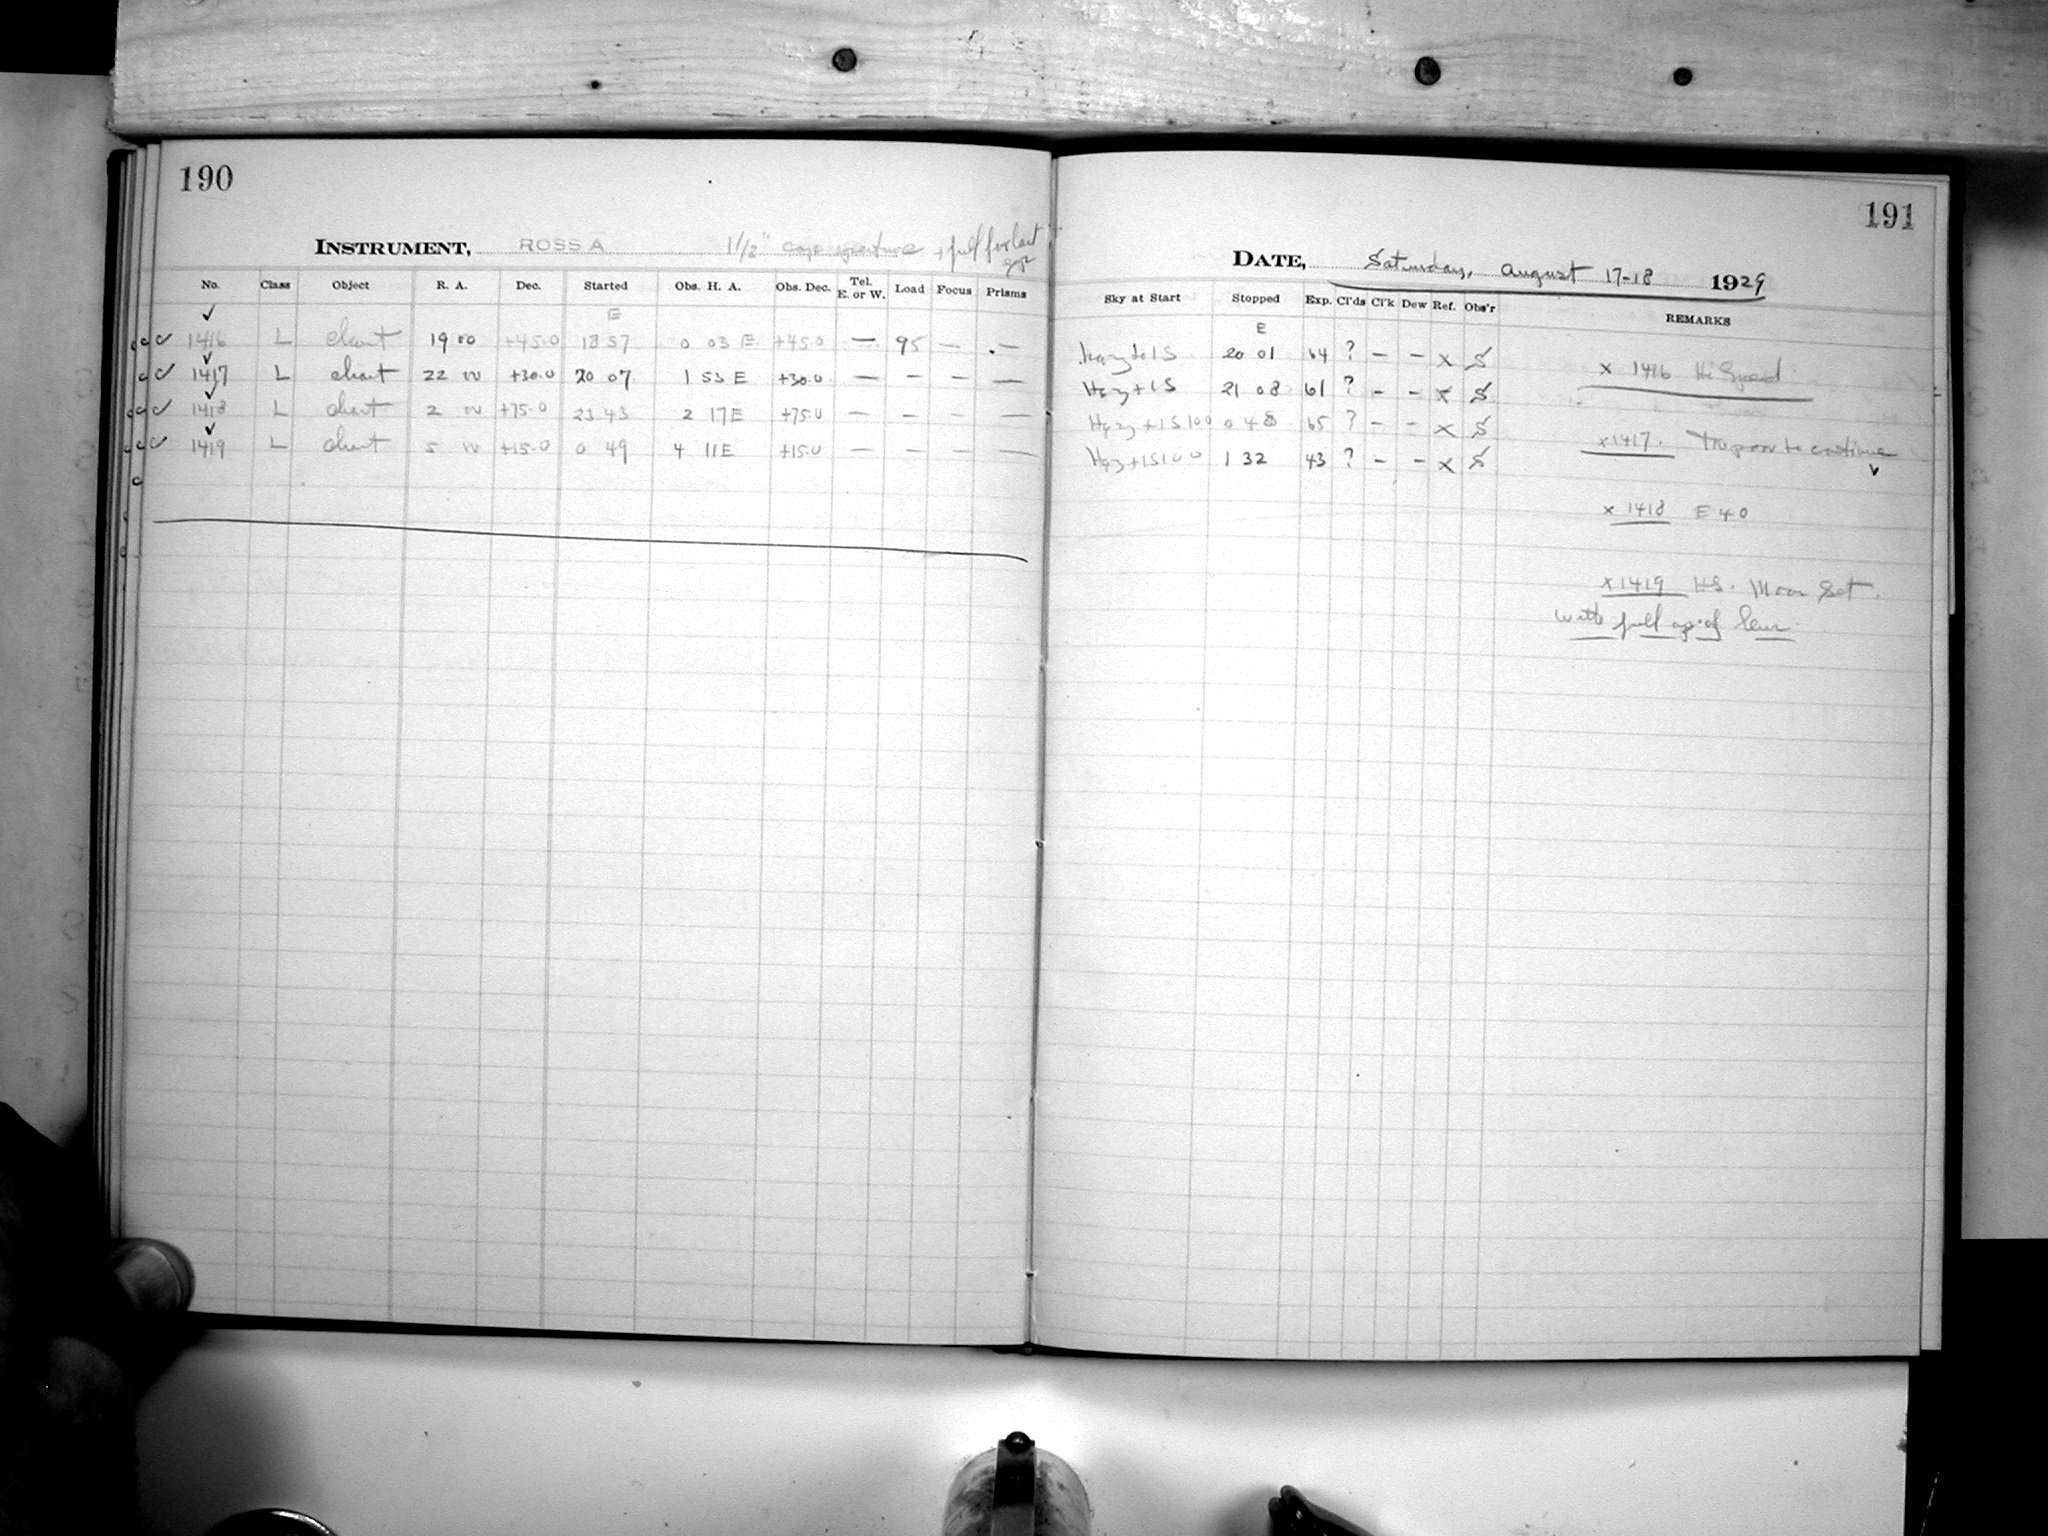 190
INSTRUMENT, ROSS A 1 1/2" aperture + full for last
No. Class Object R. A. Dec. Started Obs. H. A. Obs. Dec. Tel. E. or W. Load Focus Prisms
E
1416 L chart 19 00 +45.0 18 57 0 03 E +45.0 — 95 — —
1417 L chart 22 00 +30.0 20 07 1 53 E +30.0 — — — —
1418 L chart 2 00 +75.0 23 43 2 17 E +75.0 — — — —
1419 L chart 5 00 +15.0 0 49 4 11 E +15.0 — — — —
191
DATE, Saturday, August 17-18 1929
Sky at Start Stopped Exp. Cl'ds Cl'k Dew Ref. Obs'r REMARKS
E
Hazy + LS 20 01 64 ? — — x S
Hazy + LS 21 08 61 ? — — x S
Hazy + LS 100 0 48 65 ? — — x S
Hazy + LS 100 1 32 43 ? — — x S
x 1416 Hi Speed
x 1417. to continue
x 1418 E 40
x 1419 HS. Moon Set.
with full ap. of lens.